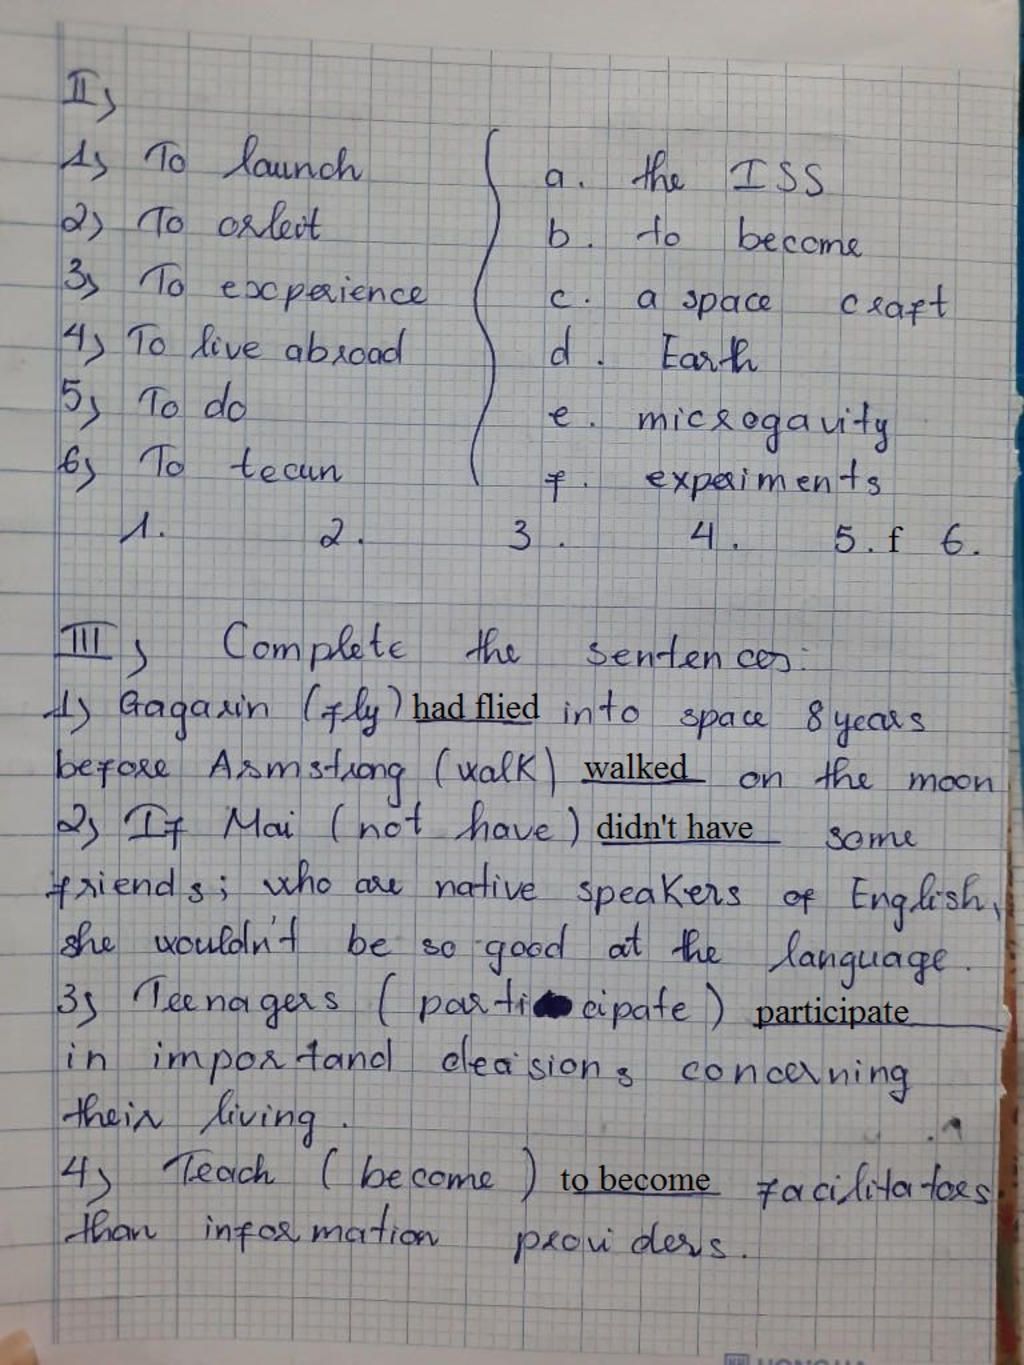 II,
1, To launch
2, To orbit
3, To experience
4, To live abroad
5, To do
6, To
a. the ISS
b. to become
c. a space craft
d. Earth
e. microgavity
f. experiments
1. 2. 3. 4. 5. f 6.
III, Complete the sentences:
1) Gagarin (fly) had flied into space 8 years
before Armstrong (walk) walked on the moon
2, If Mai (not have) didn't have some
friends; who are native speakers of English,
she wouldn't be so good at the language.
3, Teenagers (participate) participate
in importand decisions concerning
their living.
4, Teach (become) to become facilitators
than information providers.